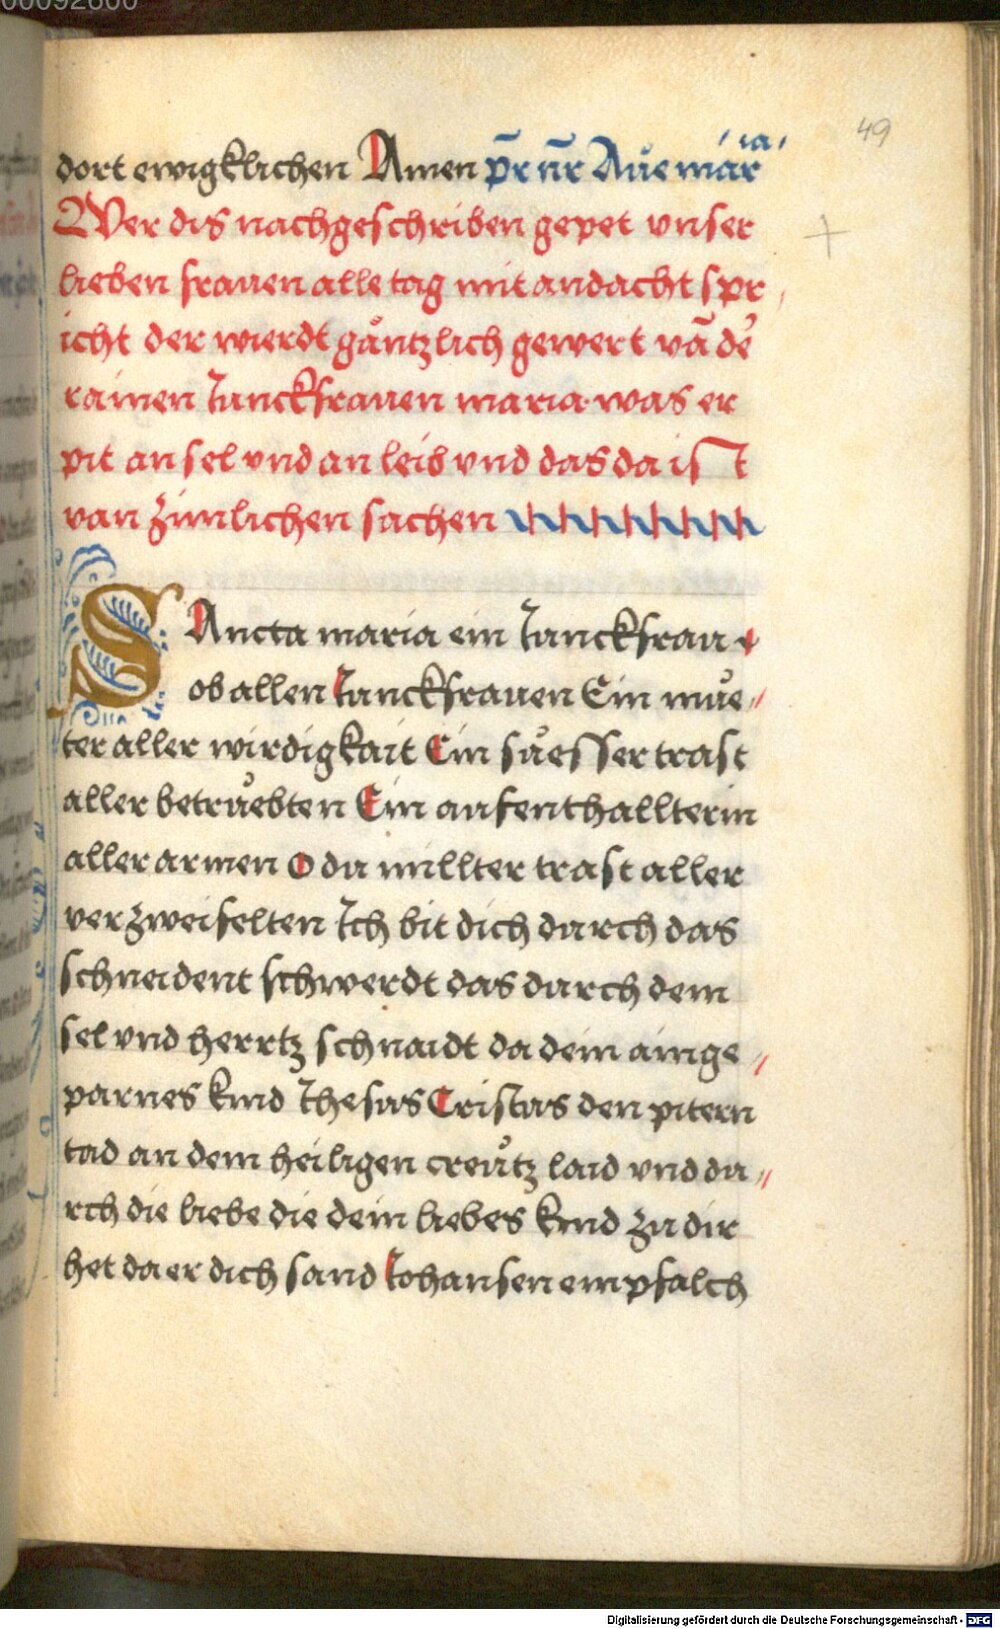 00092600
49
dort ewigklichen Amen pr̄ nr̄ Aue mar
ia
Wer dis nachgeschriben gepet vnser
lieben frauen alle tag mit andacht spr
icht der wierdt gäntzlich gewert vā de᷑
rainen Junckfrauen maria was er
pit an sel vnd an leib vnd das da ist
van zimlichen sachen
SAncta maria ein Junckfrau
ob allen Junckfrauen Ein mue
ter aller wirdigkait Ein süesser trast
aller betrüebten Ein aufenthallterin
aller armen O du millter trast aller
verzweifelten Ich bit dich durch das
schneident schwerdt das durch dein
sel vnd herrtz schnaidt da dein ainge
parnes kind Ihesus Cristus den pitern
tad an dem heiligen creütz laid vnd du
rch die liebe die dein liebes kind zu dir
het da er dich sand Johansen empfalch
Digitalisierung gefördert durch die Deutsche Forschungsgemeinschaft - DFG